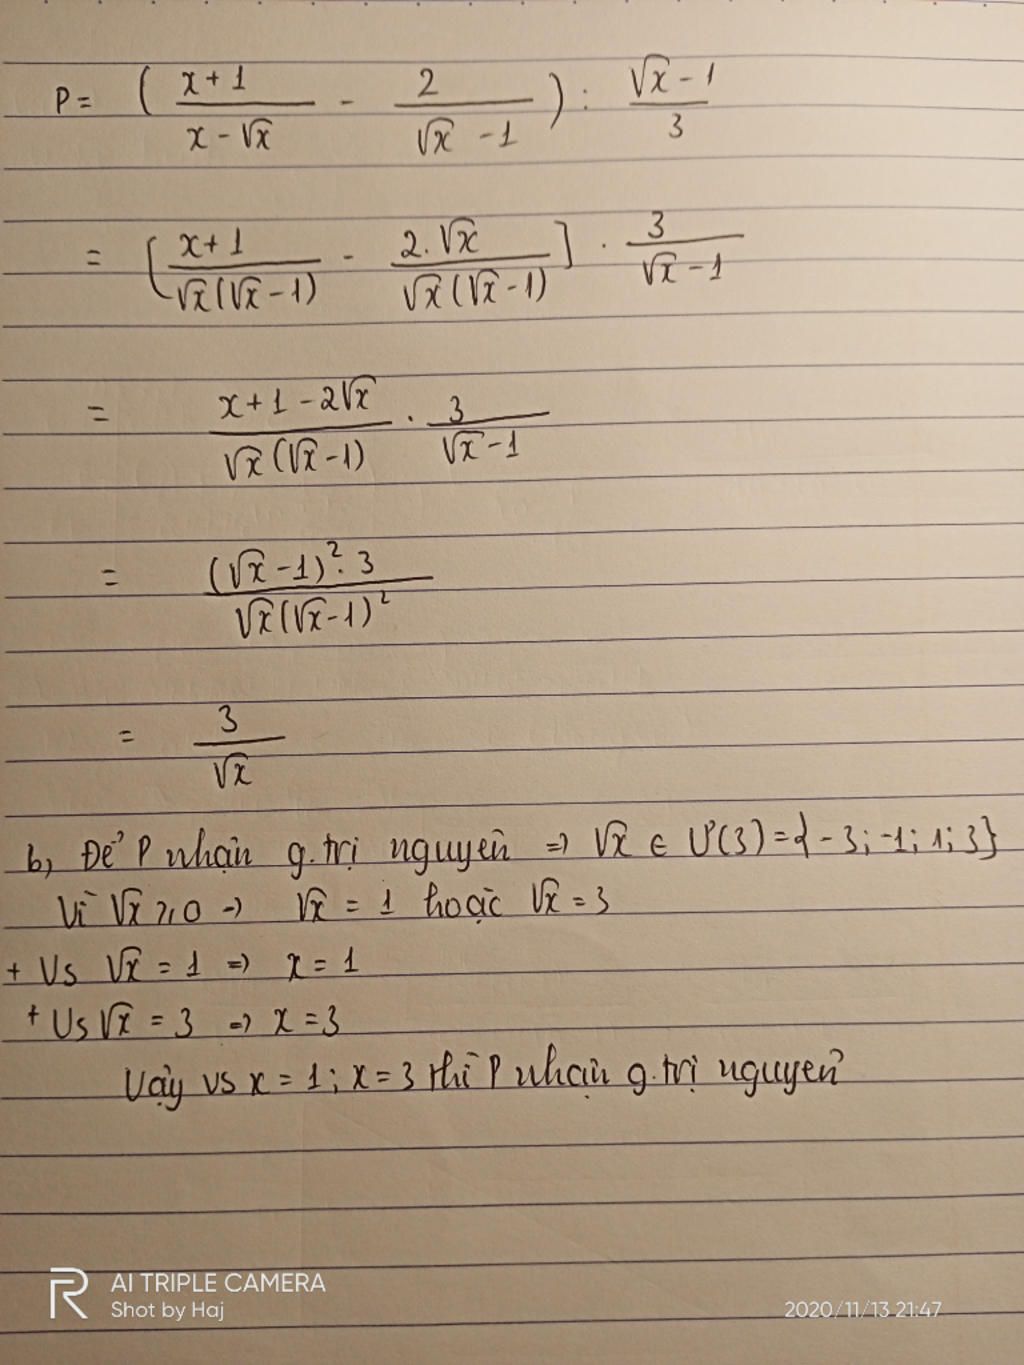 P = ( x+1 / x - √x - 2 / √x - 1 ) : √x - 1 / 3
= [ x+1 / √x(√x - 1) - 2.√x / √x(√x - 1) ] . 3 / √x - 1
= x+1 - 2√x / √x(√x - 1) . 3 / √x - 1
= (√x - 1)². 3 / √x(√x - 1)²
= 3 / √x
b, Để P nhận g.trị nguyên => √x ∈ Ư(3) = {-3; -1; 1; 3}
Vì √x ≥ 0 => √x = 1 hoặc √x = 3
+ Vs √x = 1 => x = 1
+ Vs √x = 3 => x = 3
Vậy vs x = 1; x = 3 thì P nhận g.trị nguyên
AI TRIPLE CAMERA
Shot by Haj
2020/11/13 21:47